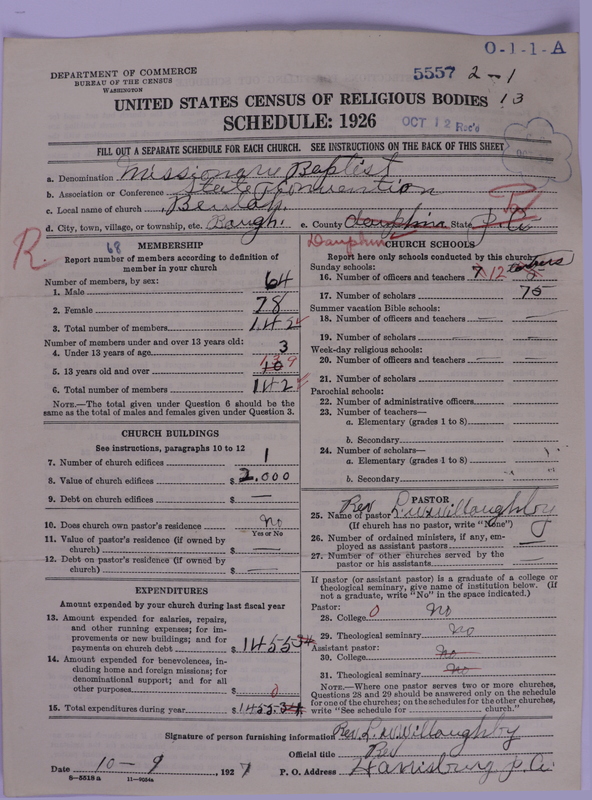 O-1-1-A
DEPARTMENT OF COMMERCE
BUREAU OF THE CENSUS
WASHINGTON
5557 2-1
UNITED STATES CENSUS OF RELIGIOUS BODIES 13
SCHEDULE: 1926
OCT 12 Rec'd
FILL OUT A SEPARATE SCHEDULE FOR EACH CHURCH. SEE INSTRUCTIONS ON THE BACK OF THIS SHEET
a. Denomination Missionary Baptist
b. Association or Conference State Convention
c. Local name of church Beulah
d. City, town, village, or township, etc. Baugh. e. County dauphina State P.a
R.
Dauphin
68
MEMBERSHIP
Report number of members according to definition of
member in your church
Number of members, by sex:
1. Male 64
2. Female 78
3. Total number of members 142
Number of members under and over 13 years old:
4. Under 13 years of age 3
5. 13 years old and over 139
6. Total number of members 142
NOTE.—The total given under Question 6 should be the
same as the total of males and females given under Question 3.
CHURCH BUILDINGS
See instructions, paragraphs 10 to 12
7. Number of church edifices 1
8. Value of church edifices $ 2.000
9. Debt on church edifices $ —
10. Does church own pastor's residence no
Yes or No
11. Value of pastor's residence (if owned by
church) $ —
12. Debt on pastor's residence (if owned by
church) $ —
EXPENDITURES
Amount expended by your church during last fiscal year
13. Amount expended for salaries, repairs,
and other running expenses; for im-
provements or new buildings; and for
payments on church debt $ 1455 34
14. Amount expended for benevolences, in-
cluding home and foreign missions; for
denominational support; and for all
other purposes $ 0
15. Total expenditures during year $ 1455.34
CHURCH SCHOOLS
Report here only schools conducted by this church
Sunday schools:
16. Number of officers and teachers 7 12 teachers 5
17. Number of scholars 75
Summer vacation Bible schools:
18. Number of officers and teachers — —
19. Number of scholars — —
Week-day religious schools:
20. Number of officers and teachers — —
21. Number of scholars —
Parochial schools:
22. Number of administrative officers
23. Number of teachers—
a. Elementary (grades 1 to 8)
b. Secondary
24. Number of scholars—
a. Elementary (grades 1 to 8)
b. Secondary
PASTOR
25. Name of pastor Rev L.W. Willoughby
(If church has no pastor, write "None")
26. Number of ordained ministers, if any, em-
ployed as assistant pastors —
27. Number of other churches served by the
pastor or his assistants —
If pastor (or assistant pastor) is a graduate of a college or
theological seminary, give name of institution below. (If
not a graduate, write "No" in the space indicated.)
Pastor:
28. College 0 No
29. Theological seminary No
Assistant pastor:
30. College No
31. Theological seminary No
NOTE.—Where one pastor serves two or more churches,
Questions 28 and 29 should be answered only on the schedule
for one of the churches; on the schedules for the other churches,
write "See schedule for church."
Signature of person furnishing information Rev. L. W Willoughby
Official title Rev
Date 10-9 , 1927 P. O. Address Harrisburg P.a.
8-5518a 11-9554a